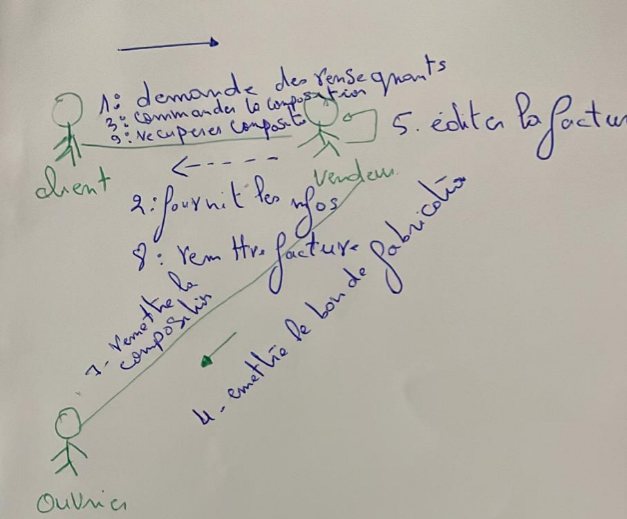 1: demande des rensegnants
3: commander la composition
9: récuperer composit
5. éditer la factur
client
vendeur
2: fournit les nfos
8: remettre facture
7- remettre la
composition
4- emettre le bon de fabrication
ouvrier